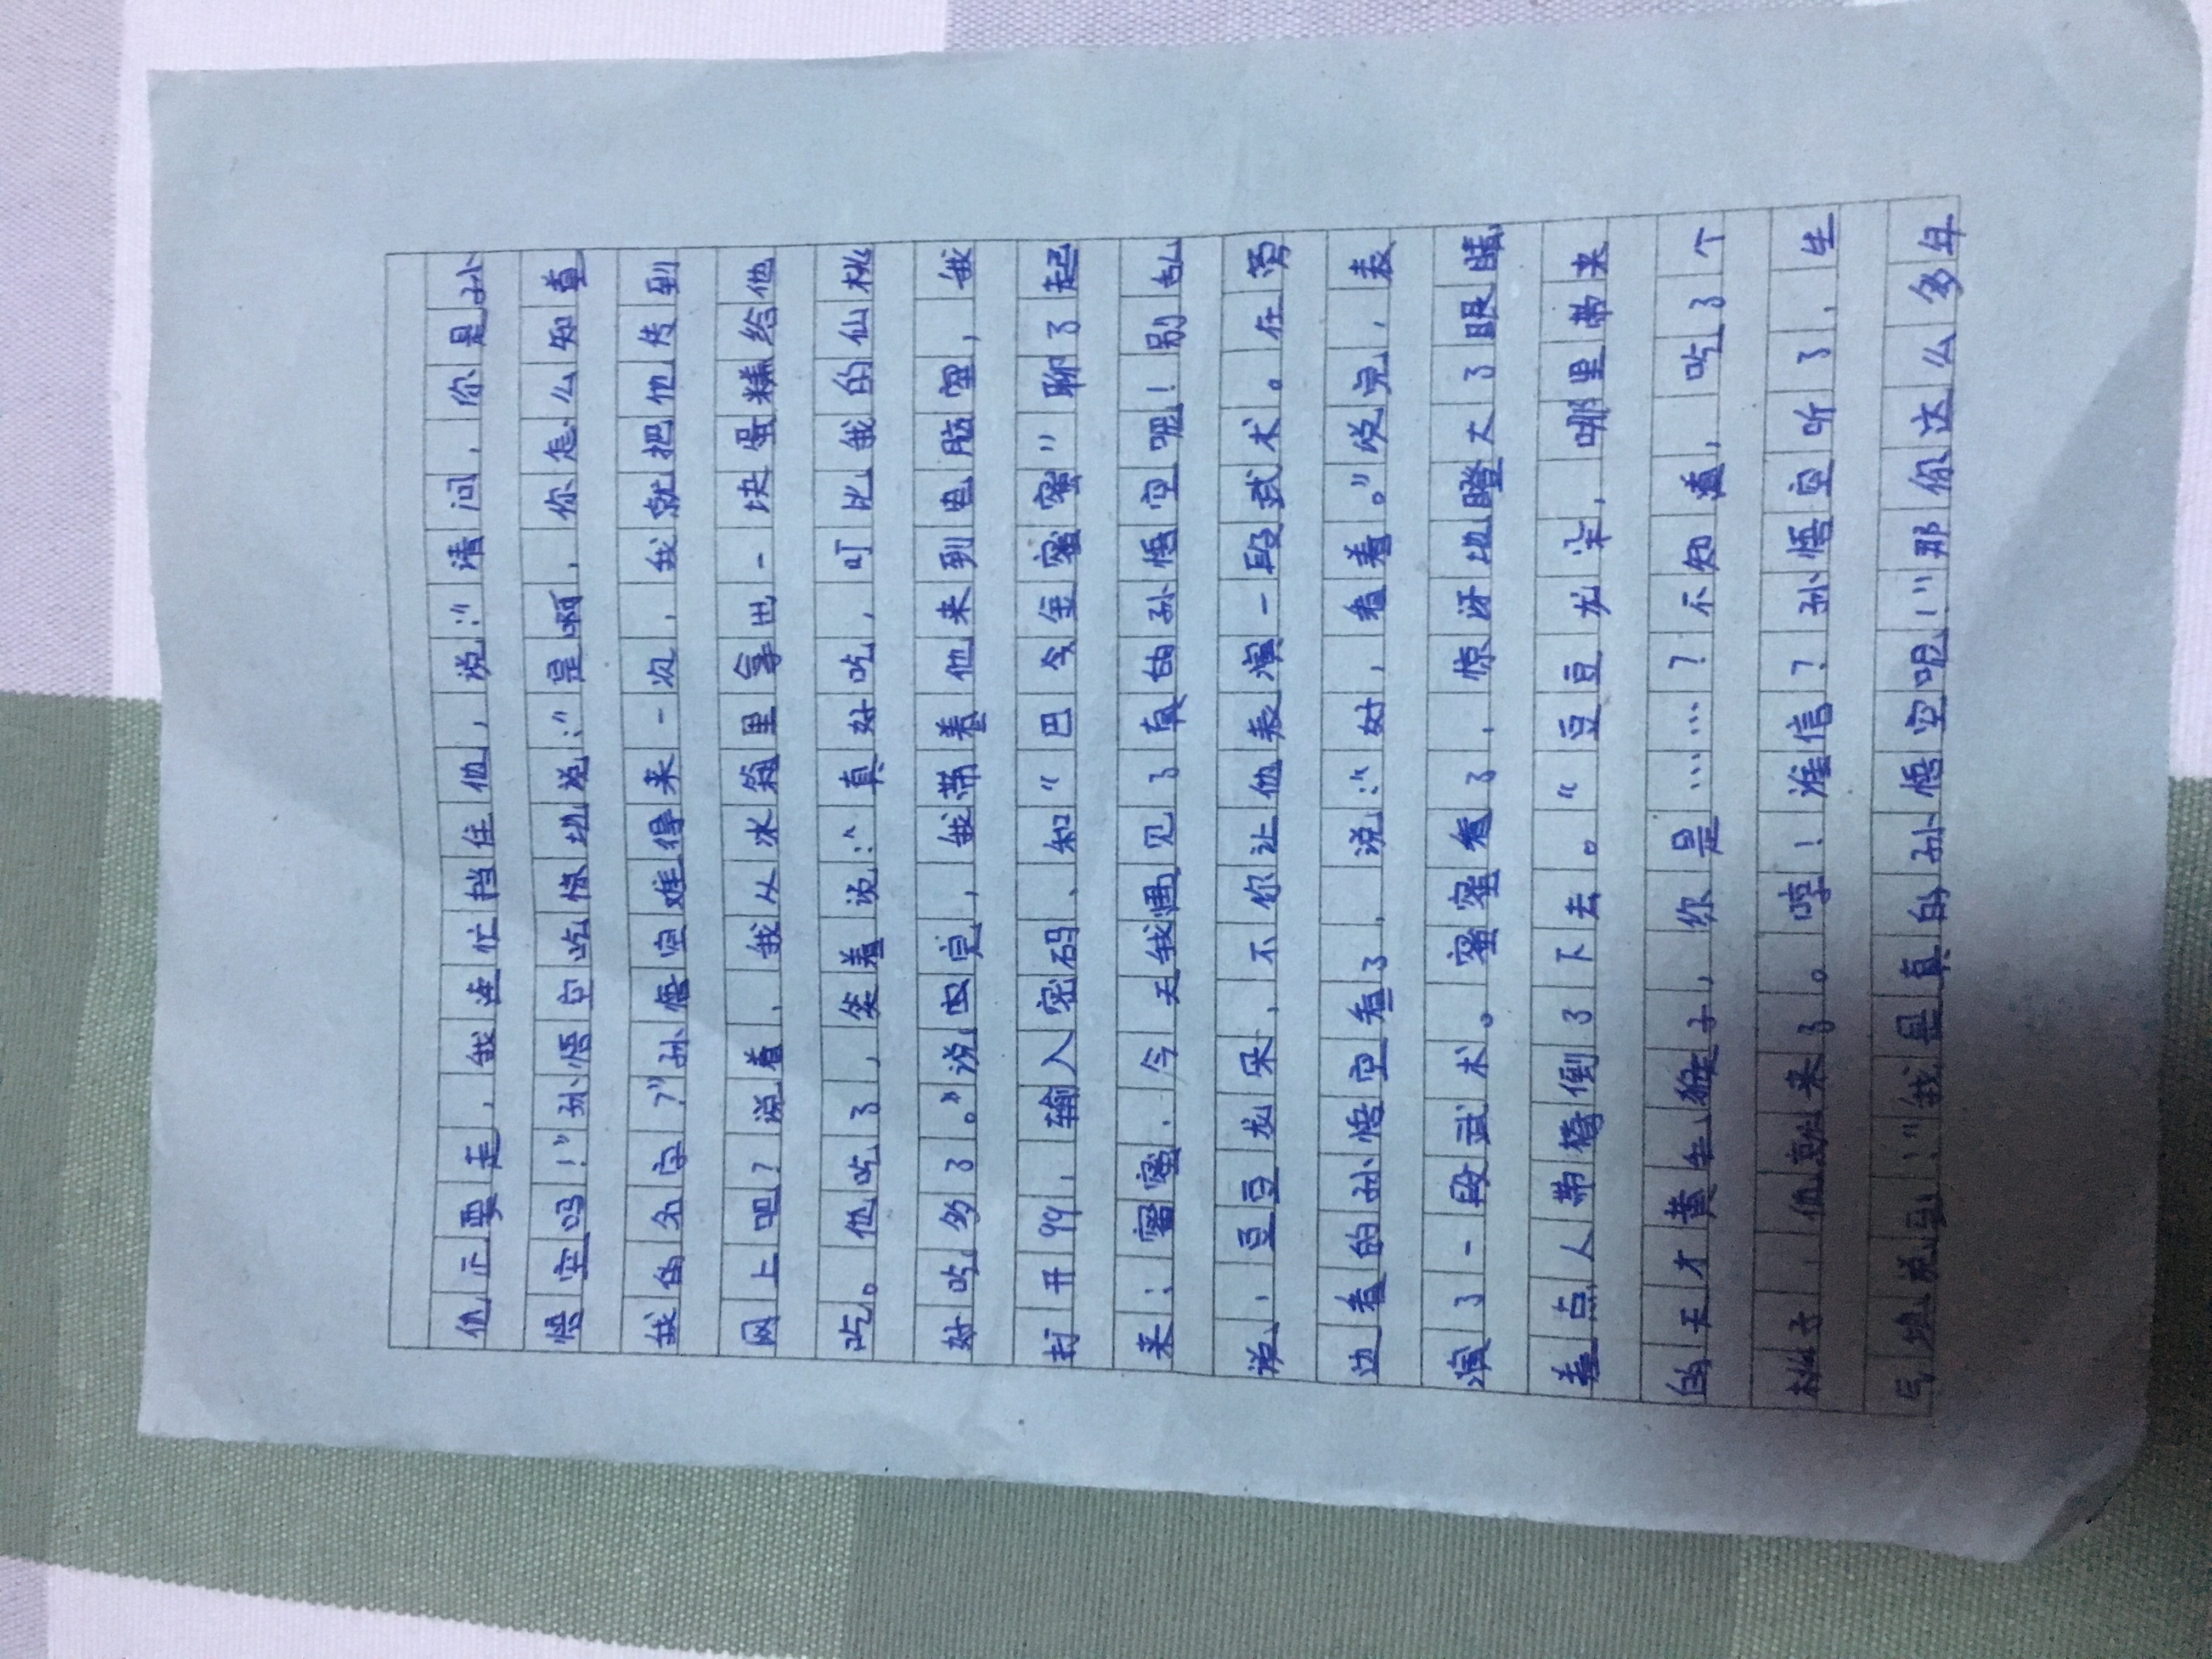 他正要走，我连忙挡住他，说：“请问，你是孙
悟空吗！”孙悟空吃惊地说：“是啊，你怎么知道
我的名字？”孙悟空难得来一次，我就把他传到
网上吧？说着，我从冰箱里拿出一块蛋糕给他
吃。他吃了，笑着说：“真好吃，可比我的仙桃
好吃多了。”说完，我带着他来到电脑室，我
打开99，输入密码、和“巴今金蜜蜜”聊了起
来：蜜蜜，今天我遇见了真的孙悟空呢！别乱
说，豆豆龙呆，不你让他表演一段武术。在旁
边看的孙悟空看了，说：“好，看着。”说完，表
演了一段武术。蜜蜜看了，惊讶地瞪大了眼睛，
差点人带椅倒了下去。“豆豆龙呆，哪里带来
的天才黄毛猴子，你是……？不知道，吃了个
桃子，他就来了。哼！谁信？孙悟空听了，生
气地说：“我是真的孙悟空呢！”那你这么多年